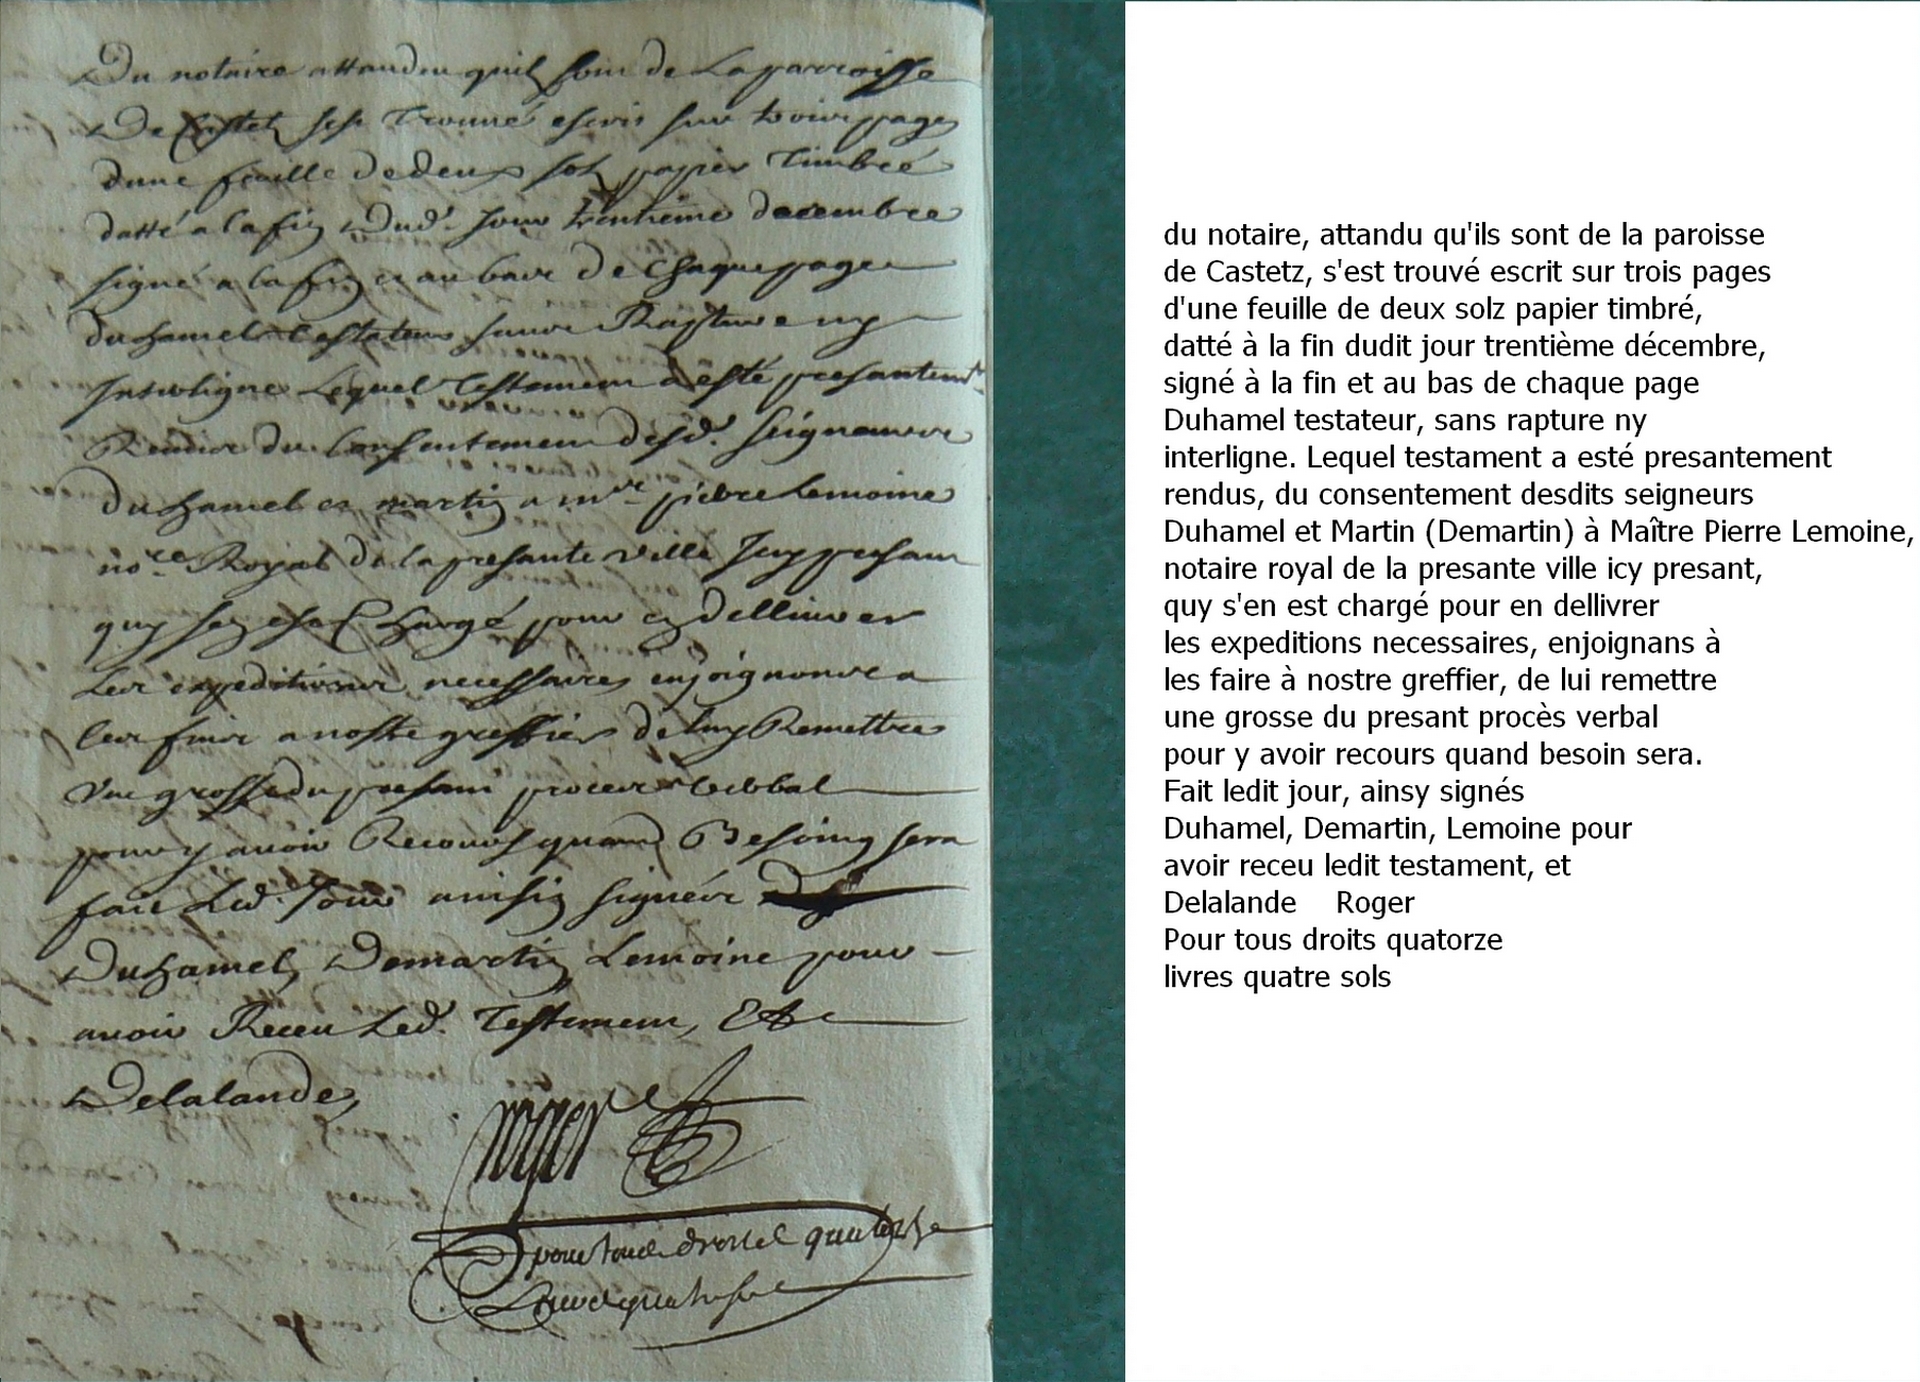 Du notaire attandu quils sont de La parroisse
De Castetz sest Trouvé escrit sur trois pages
dune feuille de deux solz papier Timbré
datté a la fin Dud.t Jour trentieme decembre
signé a la fin et au bas de Chaque page
duhamel testateur sans Rapture ny
Interligne Lequel Testament a esté presantemt
Rendus du Consentement desd. Seigneurs
duhamel et martin a mtre pierre Lemoine
nore Royal de la presante ville Icy presant
quy sen est Chargé pour en dellivrer
Les expeditions necessaires enjoignons a
les faire a nostre greffier de luy Remettre
Une grosse du presant proces verbal
pour y avoir Recours quand Besoing sera
fait Led. Jour ainsin signés
Duhamel, Demartin Lemoine pour
avoir Receu Led. Testement, Et
Delalande,
roger
pour tous droits quatorse
Livres quatre sols
du notaire, attandu qu'ils sont de la paroisse
de Castetz, s'est trouvé escrit sur trois pages
d'une feuille de deux solz papier timbré,
datté à la fin dudit jour trentième décembre,
signé à la fin et au bas de chaque page
Duhamel testateur, sans rapture ny
interligne. Lequel testament a esté presantement
rendus, du consentement desdits seigneurs
Duhamel et Martin (Demartin) à Maître Pierre Lemoine,
notaire royal de la presante ville icy presant,
quy s'en est chargé pour en dellivrer
les expeditions necessaires, enjoignans à
les faire à nostre greffier, de lui remettre
une grosse du presant procès verbal
pour y avoir recours quand besoin sera.
Fait ledit jour, ainsy signés
Duhamel, Demartin, Lemoine pour
avoir receu ledit testament, et
Delalande Roger
Pour tous droits quatorze
livres quatre sols